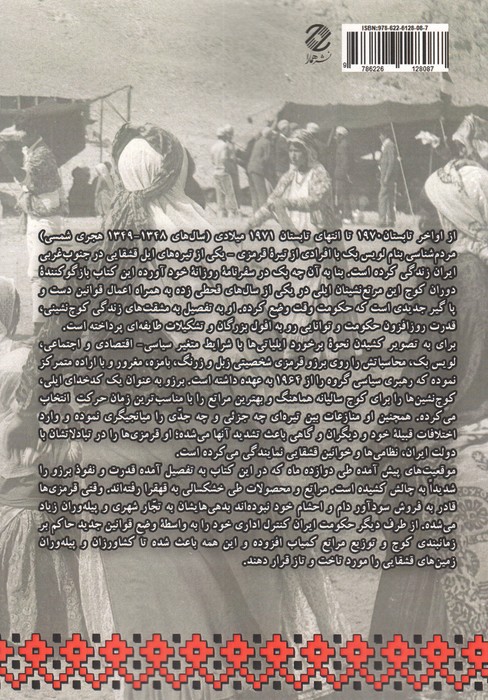 ISBN:978-622-6128-08-7
9 786226 128087
نشر همارا
از اواخر تابستان۱۹۷۰ تا انتهای تابستان ۱۹۷۱ میلادی (سال‌های ۱۳۴۸-۱۳۴۹ هجری شمسی)
مردم‌شناسی بنام لویس بک با افرادی از تیرۀ قرمزی - یکی از تیره‌های ایل قشقایی در جنوب‌غربی
ایران زندگی کرده است. بنا به آن چه بک در سفرنامۀ روزانۀ خود آورده این کتاب بازگوکنندۀ
دوران کوچ این مرتع‌نشینان ایلی در یکی از سال‌های قحطی زده به همراه اعمال قوانین دست و
پا گیر جدیدی است که حکومت وقت وضع کرده. او به تفصیل به مشقت‌های زندگی کوچ‌نشینی،
قدرت روزافزون حکومت و توانایی رو به افول بزرگان و تشکیلات طایفه‌ای پرداخته است.
برای به تصویر کشیدن نحوۀ برخورد ایلیاتی‌ها با شرایط متغیر سیاسی- اقتصادی و اجتماعی،
لویس بک، محاسباتش را روی برزو قرمزی شخصیتی زبل و زرنگ، بامزه، مغرور و با اراده متمرکز
نموده که رهبری سیاسی گروه را از ۱۹۶۲ به عهده داشته است. برزو به عنوان یک کدخدای ایلی،
کوچ‌نشین‌ها را برای کوچ سالیانه هماهنگ و بهترین مراتع را با مناسب‌ترین زمان حرکت انتخاب
می‌کرده. همچنین او منازعات بین تیره‌ای چه جزئی و چه جدّی را میانجیگری نموده و وارد
اختلافات قبیلۀ خود و دیگران و گاهی باعث تشدید آنها می‌شده؛ او قرمزی‌ها را در تبادلاتشان با
دولت ایران، نظامی‌ها و خوانین قشقایی نمایندگی می‌کرده است.
موقعیت‌های پیش آمده طی دوازده ماه که در این کتاب به تفصیل آمده قدرت و نفوذ برزو را
شدیداً به چالش کشیده است. مراتع و محصولات طی خشکسالی به قهقرا رفته‌اند. وقتی قرمزی‌ها
قادر به فروش سودآور دام و احشام خود نبوده‌اند بدهی‌هایشان به تجّار شهری و پیله‌وران زیاد
می‌شده. از طرف دیگر حکومت ایران کنترل اداری خود را به واسطۀ وضع قوانین جدید حاکم بر
زمانبندی کوچ و توزیع مراتع کمیاب افزوده و این همه باعث شده تا کشاورزان و پیله‌وران
زمین‌های قشقایی را مورد تاخت و تاز قرار دهند.